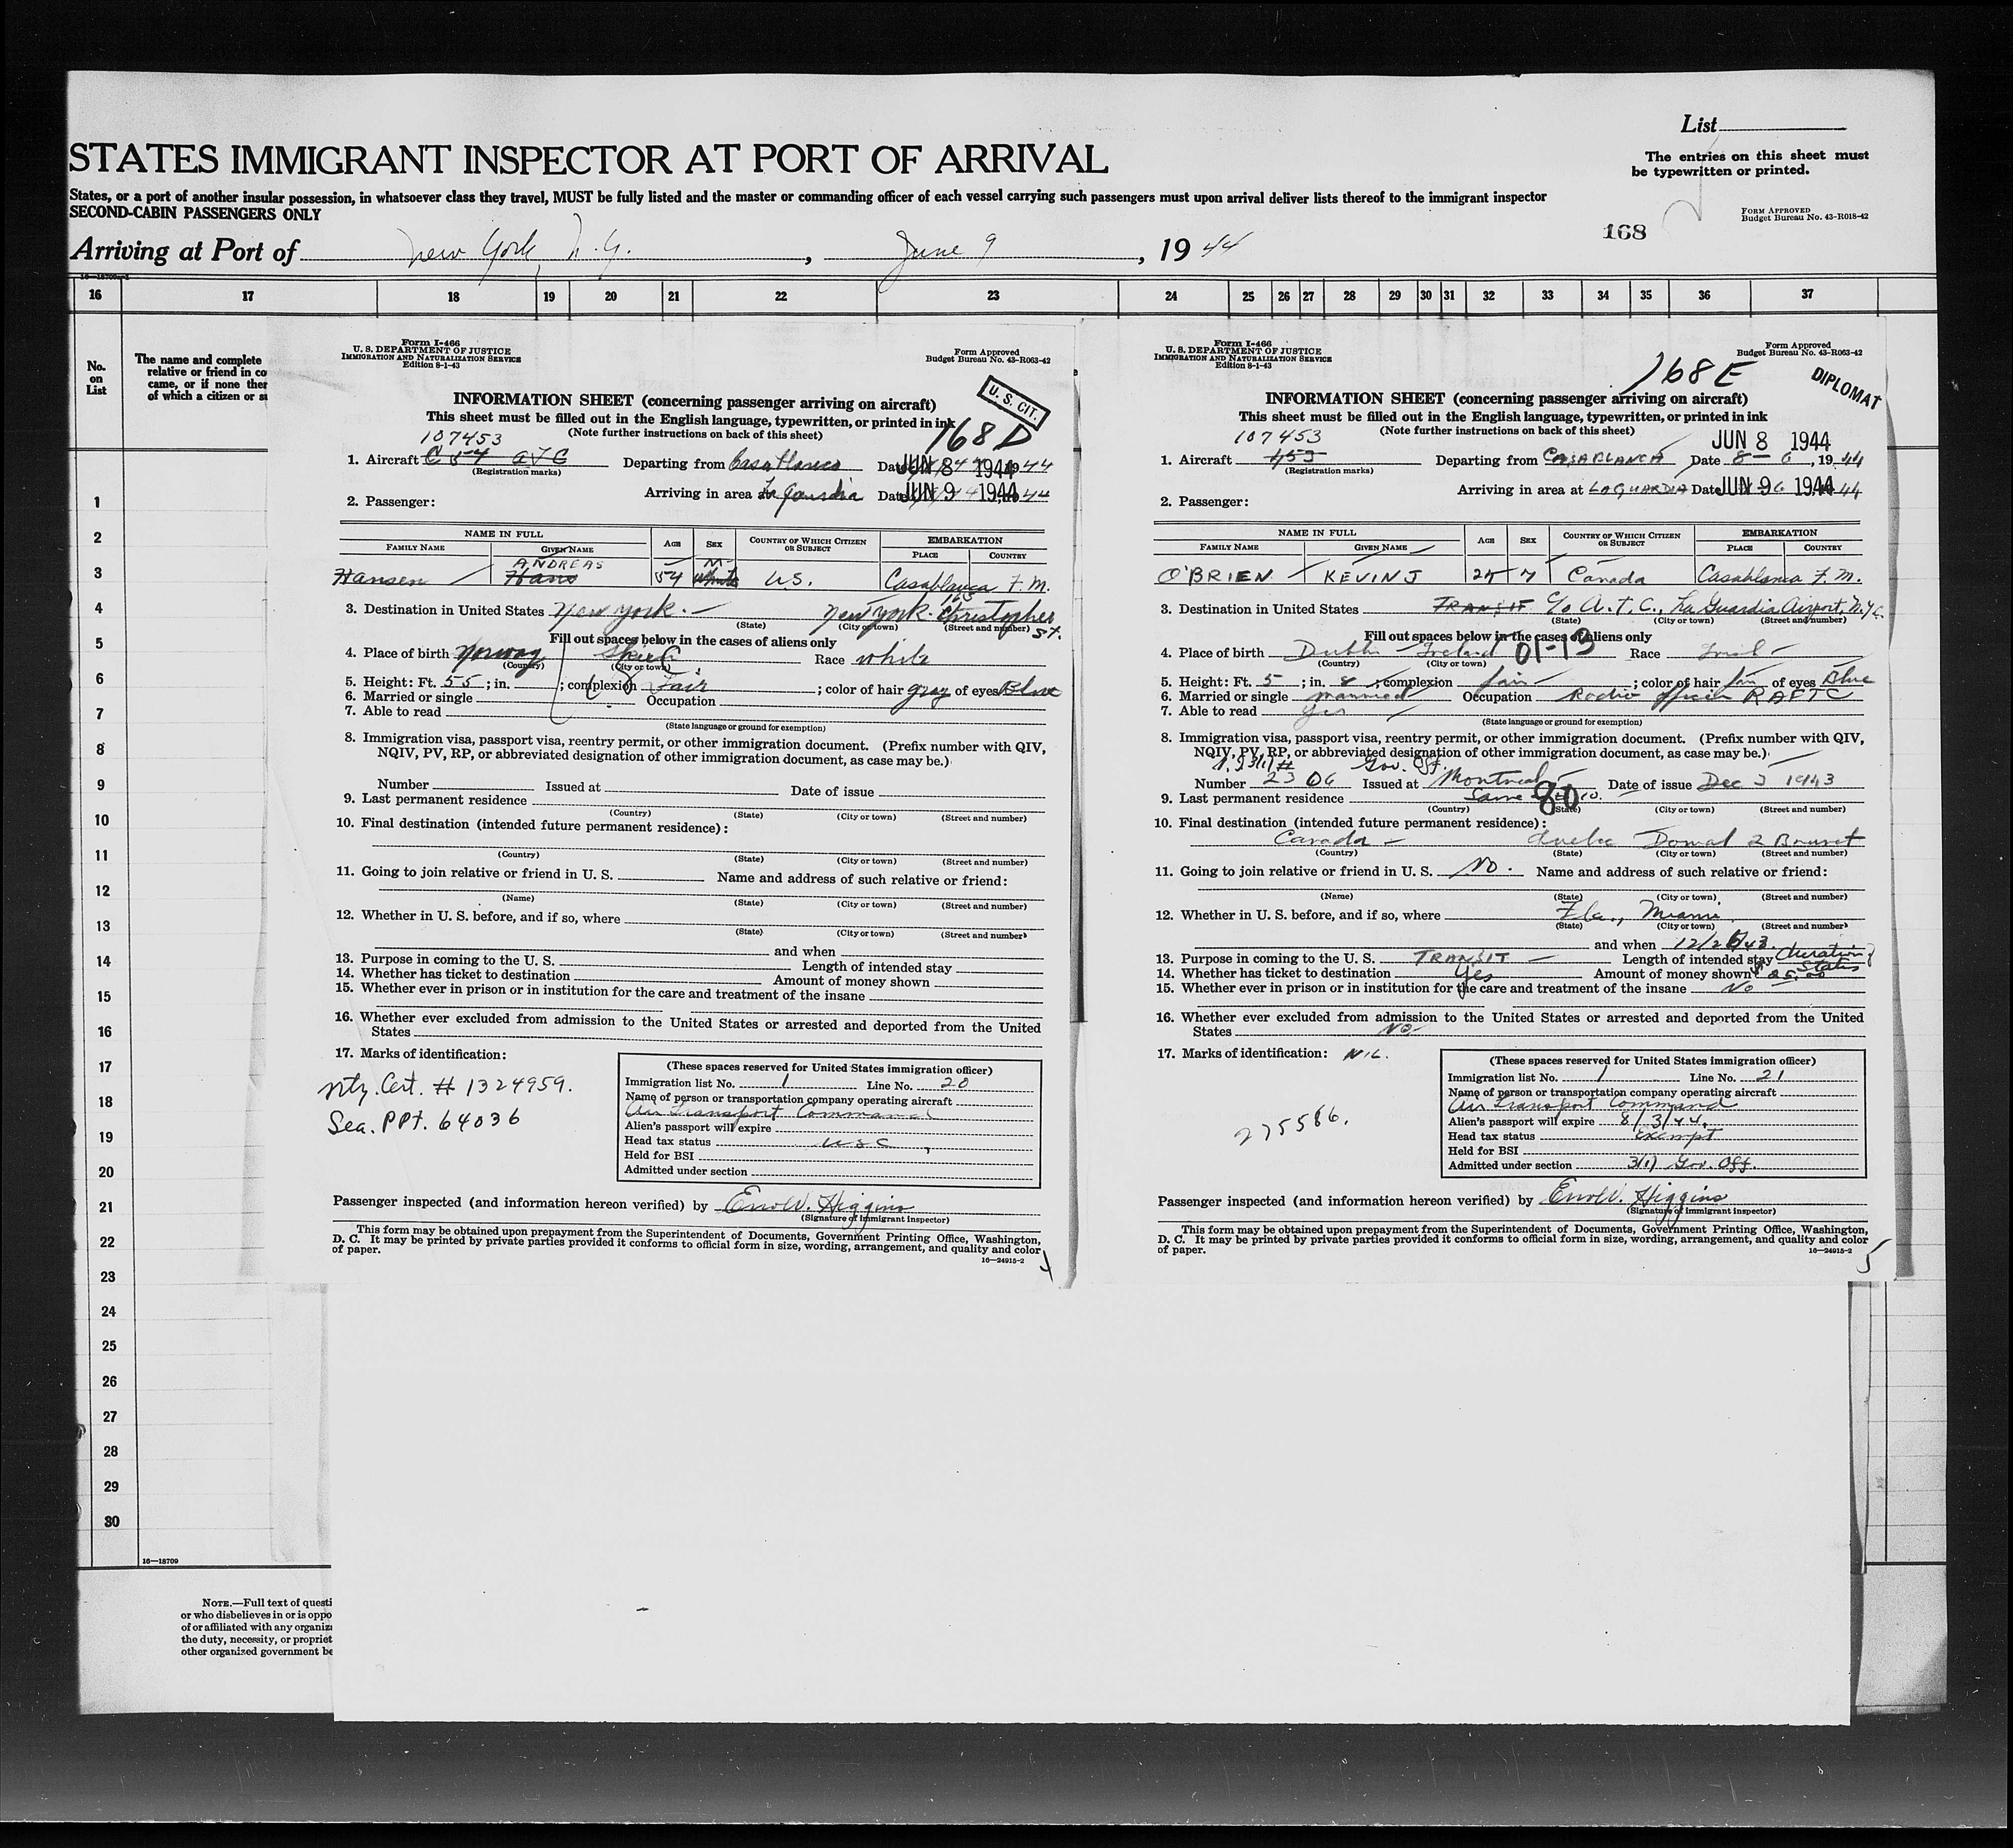 List
STATES IMMIGRANT INSPECTOR AT PORT OF ARRIVAL
The entries on this sheet must
be typewritten or printed.
States, or a port of another insular possession, in whatsoever class they travel, MUST be fully listed and the master or commanding officer of each vessel carrying such passengers must upon arrival deliver lists thereof to the immigrant inspector
SECOND-CABIN PASSENGERS ONLY
FORM APPROVED
Budget Bureau No. 43-R018-42
168
Arriving at Port of New York, N.Y., June 9, 1944
16 17 18 19 20 21 22 23 24 25 26 27 28 29 30 31 32 33 34 35 36 37
No.
on
List
The name and complete
relative or friend in co
came, or if none ther
of which a citizen or su
1
2
3
4
5
6
7
8
9
10
11
12
13
14
15
16
17
18
19
20
21
22
23
24
25
26
27
28
29
30
16—18709
NOTE.—Full text of questi
or who disbelieves in or is oppo
of or affiliated with any organiza
the duty, necessity, or propriet
other organized government be
Form I-466
U. S. DEPARTMENT OF JUSTICE
IMMIGRATION AND NATURALIZATION SERVICE
Edition 8-1-43
Form Approved
Budget Bureau No. 43-R063-42
U. S. CIT.
INFORMATION SHEET (concerning passenger arriving on aircraft)
This sheet must be filled out in the English language, typewritten, or printed in ink
168 D
(Note further instructions on back of this sheet)
107453
1. Aircraft C 54 Departing from Casablanca Date JUN 8 1944 44
(Registration marks)
Arriving in area at La Guardia Date JUN 9 1944 44
2. Passenger:
NAME IN FULL AGE SEX COUNTRY OF WHICH CITIZEN OR SUBJECT EMBARKATION
FAMILY NAME GIVEN NAME PLACE COUNTRY
ANDREAS M
Hansen Hans 54 White U.S. Casablanca F.M.
3. Destination in United States New York. New York. 165 Christopher St.
(State) (City or town) (Street and number)
Fill out spaces below in the cases of aliens only
4. Place of birth Norway Race white
(Country) (City or town)
5. Height: Ft. 55; in. ; complexion Fair; color of hair gray of eyes Blue
6. Married or single Occupation
7. Able to read
(State language or ground for exemption)
8. Immigration visa, passport visa, reentry permit, or other immigration document. (Prefix number with QIV,
NQIV, PV, RP, or abbreviated designation of other immigration document, as case may be.)
Number Issued at Date of issue
9. Last permanent residence
(Country) (State) (City or town) (Street and number)
10. Final destination (intended future permanent residence):
(Country) (State) (City or town) (Street and number)
11. Going to join relative or friend in U. S. Name and address of such relative or friend:
(Name) (State) (City or town) (Street and number)
12. Whether in U. S. before, and if so, where
(State) (City or town) (Street and number)
and when
13. Purpose in coming to the U. S. Length of intended stay
14. Whether has ticket to destination Amount of money shown
15. Whether ever in prison or in institution for the care and treatment of the insane
16. Whether ever excluded from admission to the United States or arrested and deported from the United
States
17. Marks of identification:
Ntz. Cert. # 1324959.
Sea. PPt. 64036
(These spaces reserved for United States immigration officer)
Immigration list No. 1 Line No. 20
Name of person or transportation company operating aircraft
Air Transport Command
Alien's passport will expire
Head tax status USC
Held for BSI
Admitted under section
Passenger inspected (and information hereon verified) by Errol W. Higgins
(Signature of immigrant inspector)
This form may be obtained upon prepayment from the Superintendent of Documents, Government Printing Office, Washington,
D. C. It may be printed by private parties provided it conforms to official form in size, wording, arrangement, and quality and color
of paper.
16—24915-2
4
Form I-466
U. S. DEPARTMENT OF JUSTICE
IMMIGRATION AND NATURALIZATION SERVICE
Edition 8-1-43
Form Approved
Budget Bureau No. 43-R063-42
168 E
DIPLOMAT
INFORMATION SHEET (concerning passenger arriving on aircraft)
This sheet must be filled out in the English language, typewritten, or printed in ink
(Note further instructions on back of this sheet)
107453 JUN 8 1944
1. Aircraft 453 Departing from CASABLANCA Date 8-6, 1944
(Registration marks)
Arriving in area at LAGUARDIA Date JUN 9 1944 44
2. Passenger:
NAME IN FULL AGE SEX COUNTRY OF WHICH CITIZEN OR SUBJECT EMBARKATION
FAMILY NAME GIVEN NAME PLACE COUNTRY
O'BRIEN KEVIN J Canada Casablanca F.M.
3. Destination in United States TRANSIT C/o A.T.C., La Guardia Airport, N.Y.C.
(State) (City or town) (Street and number)
Fill out spaces below in the cases of aliens only
4. Place of birth Dublin Ireland 01-13 Race Irish
(Country) (City or town)
5. Height: Ft. 5; in. 8; complexion fair; color of hair fair of eyes Blue
6. Married or single married Occupation Radio officer RAFTC
7. Able to read yes
(State language or ground for exemption)
8. Immigration visa, passport visa, reentry permit, or other immigration document. (Prefix number with QIV,
NQIV, PV, RP, or abbreviated designation of other immigration document, as case may be.)
Gov. Off.
Number 2306 Issued at Montreal Date of issue Dec 3 1943
9. Last permanent residence Same 80
(Country) (State) (City or town) (Street and number)
10. Final destination (intended future permanent residence):
Canada Quebec Dorval
(Country) (State) (City or town) (Street and number)
11. Going to join relative or friend in U. S. No. Name and address of such relative or friend:
(Name) (State) (City or town) (Street and number)
12. Whether in U. S. before, and if so, where Fla., Miami
(State) (City or town) (Street and number)
and when
13. Purpose in coming to the U. S. TRANSIT Length of intended stay duration of status
14. Whether has ticket to destination Yes Amount of money shown
15. Whether ever in prison or in institution for the care and treatment of the insane No
16. Whether ever excluded from admission to the United States or arrested and deported from the United
States NO
17. Marks of identification: NIL.
275586.
(These spaces reserved for United States immigration officer)
Immigration list No. 1 Line No. 21
Name of person or transportation company operating aircraft
Air Transport Command
Alien's passport will expire 8/3/44.
Head tax status Exempt
Held for BSI
Admitted under section 3(1) Gov. Off.
Passenger inspected (and information hereon verified) by Errol W. Higgins
(Signature of immigrant inspector)
This form may be obtained upon prepayment from the Superintendent of Documents, Government Printing Office, Washington,
D. C. It may be printed by private parties provided it conforms to official form in size, wording, arrangement, and quality and color
of paper.
16—24915-2
5